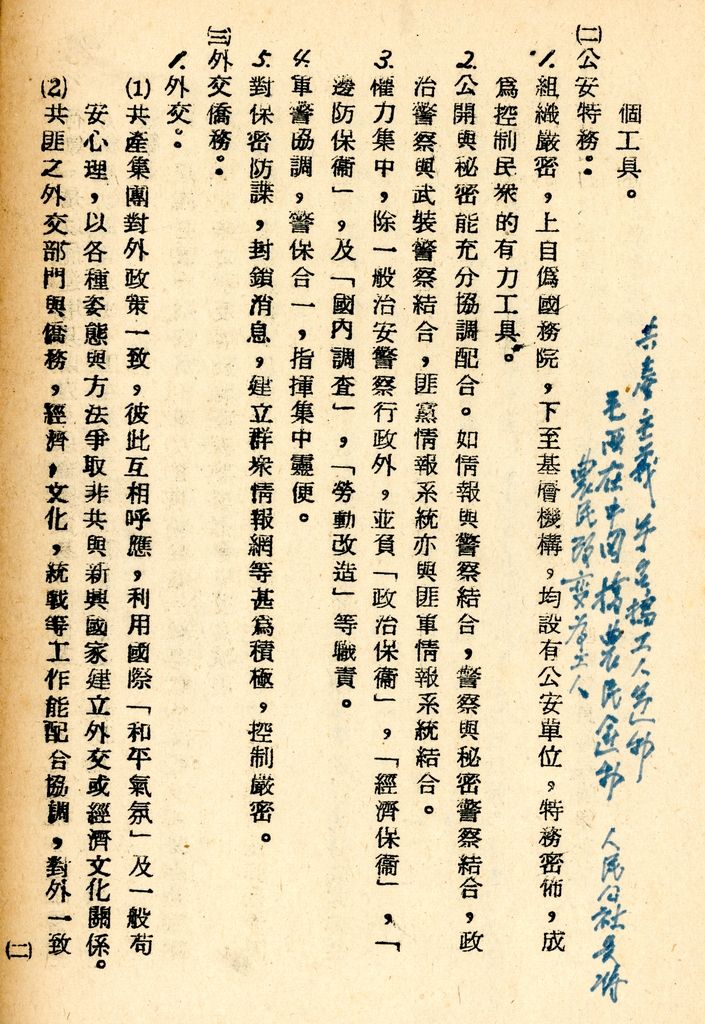 個工具。
㈡公安特務：
1.組織嚴密，上自偽國務院，下至基層機構，均設有公安單位，特務密佈，成
為控制民衆的有力工具。
2.公開與秘密能充分協調配合。如情報與警察結合，警察與秘密警察結合，政
治警察與武裝警察結合，匪黨情報系統亦與匪軍情報系統結合。
3.權力集中，除一般治安警察行政外，並負「政治保衞」，「經濟保衞」，「
邊防保衞」，及「國內調查」，「勞動改造」等職責。
4.軍警協調，警保合一，指揮集中靈便。
5.對保密防諜，封鎖消息，建立群衆情報網等甚為積極，控制嚴密。
㈢外交僑務：
1.外交。
⑴共產集團對外政策一致，彼此互相呼應，利用國際「和平氣氛」及一般苟
安心理，以各種姿態與方法爭取非共與新興國家建立外交或經濟文化關係。
⑵共匪之外交部門與僑務，經濟，文化，統戰等工作能配合協調，對外一致
㈡
共產主義 工人運動
毛匪在中国搞農民運動 人民公社是將
農民改變為工人